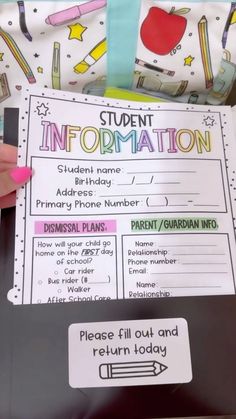 STUDENT
INFORMATION
Student name:
Birthday: __/__/__
Address:
Primary Phone Number: (   )
DISMISSAL PLANS:
How will your child go
home on the FIRST day
of school?
○ Car rider
○ Bus rider (#
○ Walker
○ After School Care
PARENT/GUARDIAN INFO:
Name:
Relationship:
Phone number:
Email:
Name:
Relationship:
Please fill out and
return today